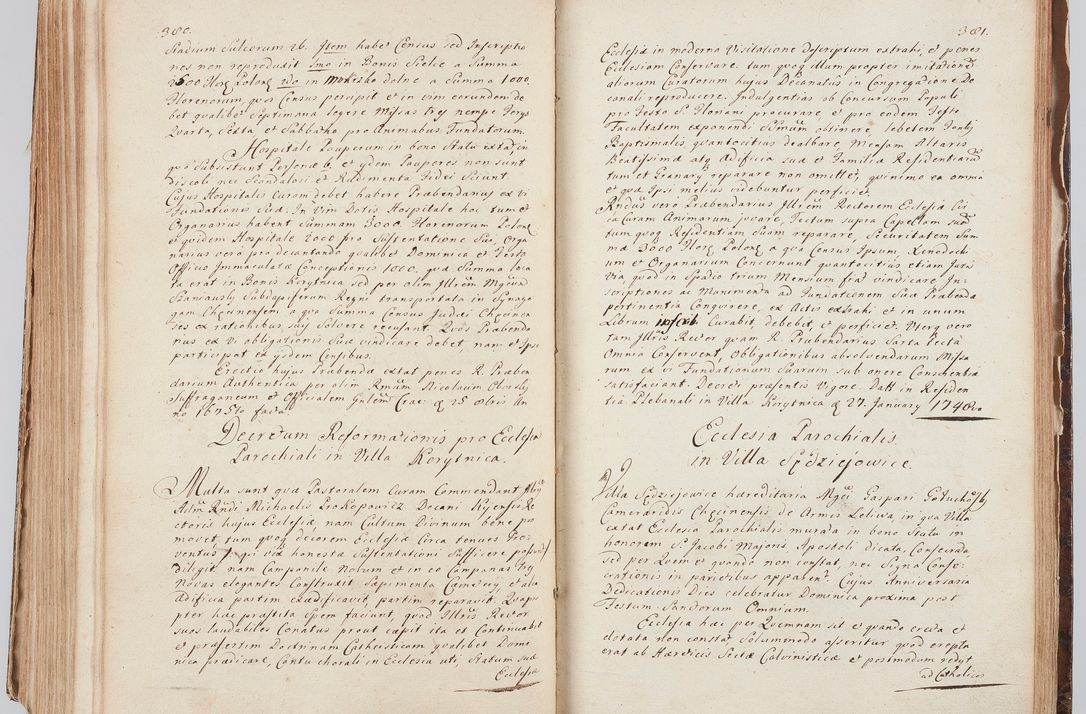 380.
Stadium Sulcorum 26. Item habet Census sed Inscriptio
nes non reproduxit Imo in Bonis Sielce a Summa
Hor. Polon. 2do in Mokrsko dolne a Summa 1000.
Florenorum, quos Census percipit et in vim eorundem de
bet qualibet Septimana legere Missas tres nempe Ferys
Quarta, Sexta et Sabbatho pro Animabus Fundatorum.
Hospitale Pauperum in bono Statu extat, in
quo Subsistunt Personae 6. et ydem Pauperes non sunt
Discoli nec Scandalosi et Rudimenta Fidei Sciunt.
Cujus Hospitalis Curam debet habere Praebendarius ex vi
Fundationis Suae. In Vim Dotis Hospitale hoc tum et
Organarius habent Summam 3000. Florenorum Polon.
et quidem Hospitale 2000 pro Sustentatione Sui, Orga
narius vero pro decantando qualibet Dominica et Festo
Officio Immaculatae Conceptionis 1000. quae Summa loca
ta erat in Bonis Korytnica sed per olim Illrem
Szaniawski Subdapiferum Regni transportata in Synago
gam Chęcinensem a quo Summa Census Judaei Chęcinen
ses ex rationibus suis Solvere recusant. Quos Praebenda
rius ex vi obligationis Suae vindicare debet nam et Ipse
participat ex ysdem Censibus.
Erectio hujus Praebenda extat penes R. Praeben
darium Authentica per olim Rmum Nicolaum Oborsky
Suffraganeum et Officialem Gnlem Crac: d. 25 8bris An
no 1675to facta.
Decretum Reformationis pro Ecclesia
Parochiali in Villa Korytnica.
Multa sunt quae Pastoralem Curam Commendant
Adm. Rndi Michaelis Prokopowicz Decani Kijensis Re
ctoris hujus Ecclesiae, nam Cultum Divinum bene pro
movet, tum quoq decorem Ecclesiae Circa tenues Pro
ventus qui vix honestae Sustentationi Sufficere possunt
diligit, nam Campanile Novum et in eo Campanas tres
Novas elegantes Construxit Sepimenta Caemetery et alia
Aedificia partim exaedificavit, partim reparavit. Qua
pter hac praestita Spem faciunt, quod Illris Rector
suos laudabiles Conatus prout caepit ita et Continuabit
et praesertim Doctrinam Catheisticam qualibet Domi
nica praedicare, Cantu chorali in Ecclesia uti, Statum suae
Ecclesiae
381.
Ecclesiae in moderna Visitatione descriptum extrahi, et penes
Ecclesiam Conservare. tum quoq illum propter imitationem
aliorum Curatorum hujus Decanatus in Congregatione De
canali reproducere. Indulgentias ob Concursum Populi
pro Festo S. Floriani procurare, et pro eodem Festo
Facultatem exponendi Ssmum obtinere, lebetem Fontis
Baptismalis quantocitius dealbare, Mensam Altaris
Beatissimae atq Aedificia sua et Familiae Residentiarum
tum et Granary reparare non omittet, quinimo ea omnia
et quae Ipsi melius videbuntur perficiet.
Rndus vero Praebendarius Illrem Rectorem Ecclesiae Cir
ca Curam Animarum juvare, Tectum supra Capellam suam
tum quoq Residentiam Suam reparare, Securitatem Sum
mae 3000 Flor. Polon. a qua Census Ipsum, Xenodochi
um et Organarium Concernunt quantocitius etiam Juris
Via quod in Spatio trium Mensium fiat vindicare, In
scriptiones ac Munimenta ad Fundationem Suae Praebenda
pertinentia Conquirere, ex Actis extrahi et in unum
Librum Curabit, debebit, et perficiet. Uterq vero
tam Illris Rector quam R. Praebendarius Sarta tecta
Omnia Conservent, Obligationibus absolvendarum Missa
rum ex vi Fundationum Suarum sub onere Conscientiae
satisfaciant. Decreti praesentis Vigore. Datt in Residen
tia Plebanali in Villa Korytnica d. 27. January 1748vo
Ecclesia Parochialis
in Villa Sędziejowice.
Villa Sędziejowice haereditaria Mgci Gaspari
Cameraridis Chęcinensis de Armis Leliwa, in qua Villa
extat Ecclesia Parochialis murata in bono Statu in
honorem S. Jacobi Majoris Apostoli dicata, Consecrata
sed per Quem et quando non constat, nec Signa Conse
crationis in parietibus apparent. Cujus Anniversaria
Dedicationis Dies celebratur Dominica proxima post
Festum Sanctorum Omnium.
Ecclesia haec per Quemnam sit et quando erecta et
dotata non constat Solummodo asseritur quod erepta
erat ab Haereticis Sectae Calvinisticae et postmodum redyt
ad Catholicos